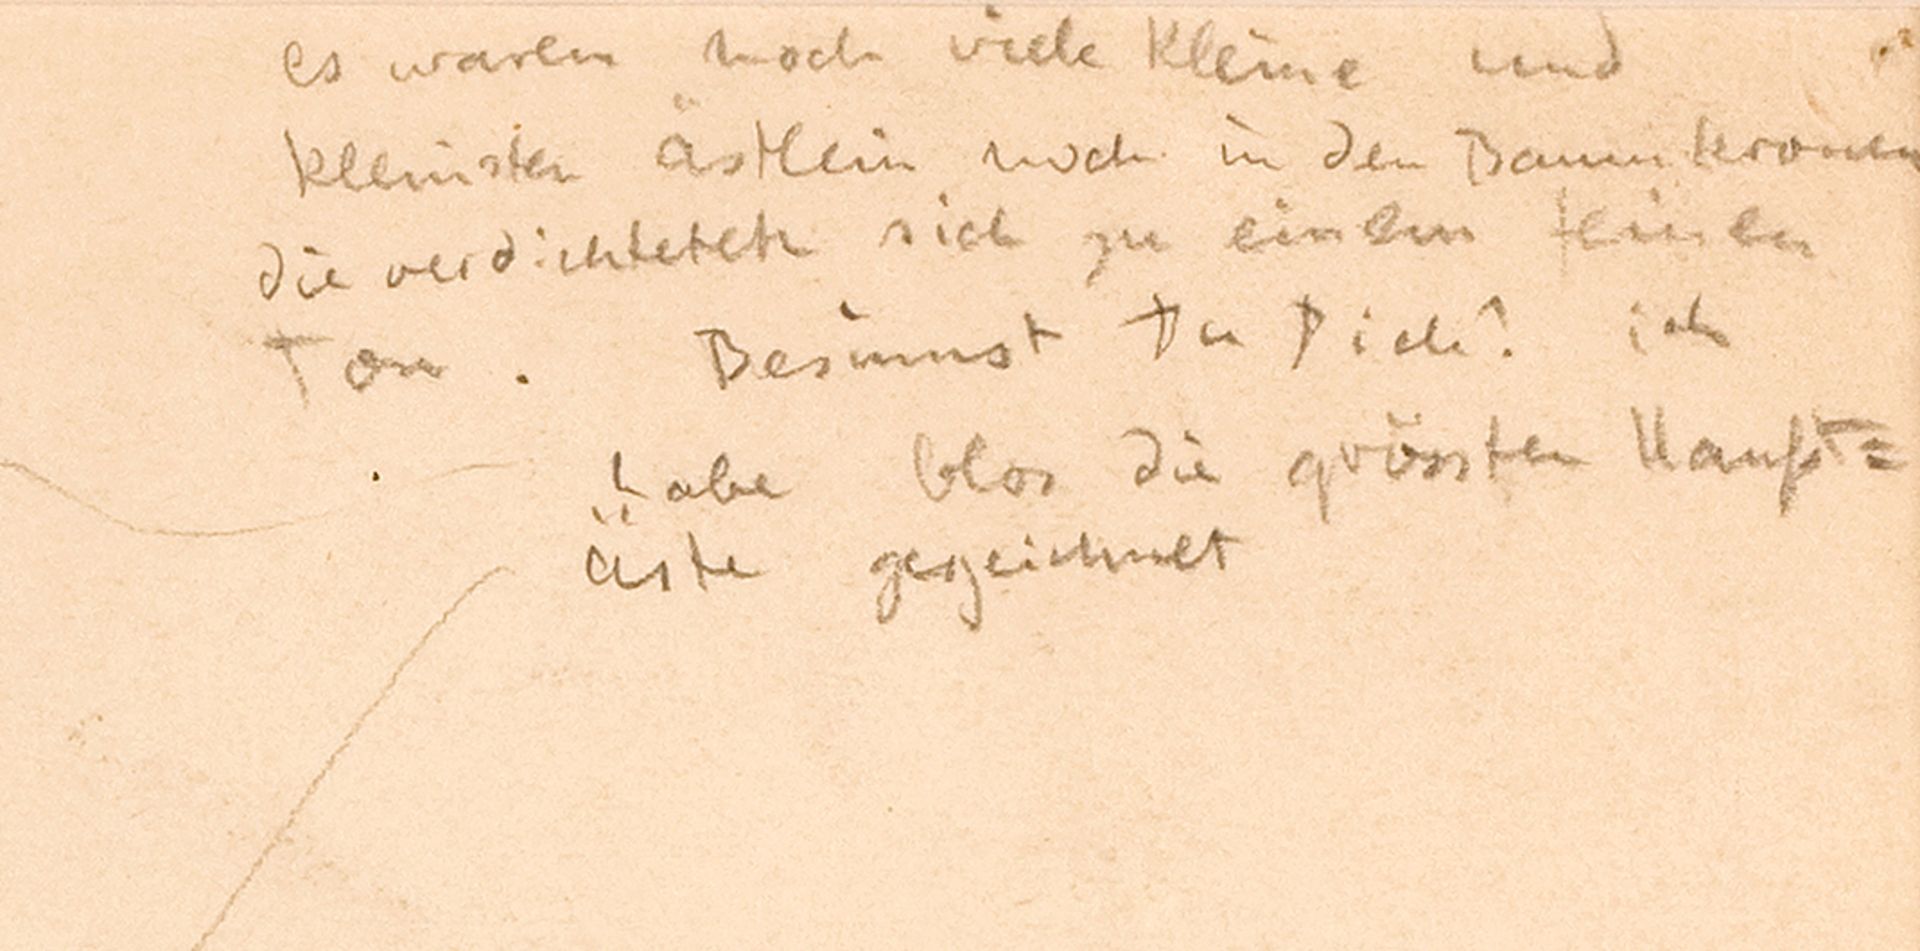 es waren noch viele kleine und
kleinsten ästlein noch in den Baumkronen
die verdichteten sich zu einem feinen
Ton. Besinnst Du Dich? ich
habe blos die grössten Haupt=
äste gezeichnet